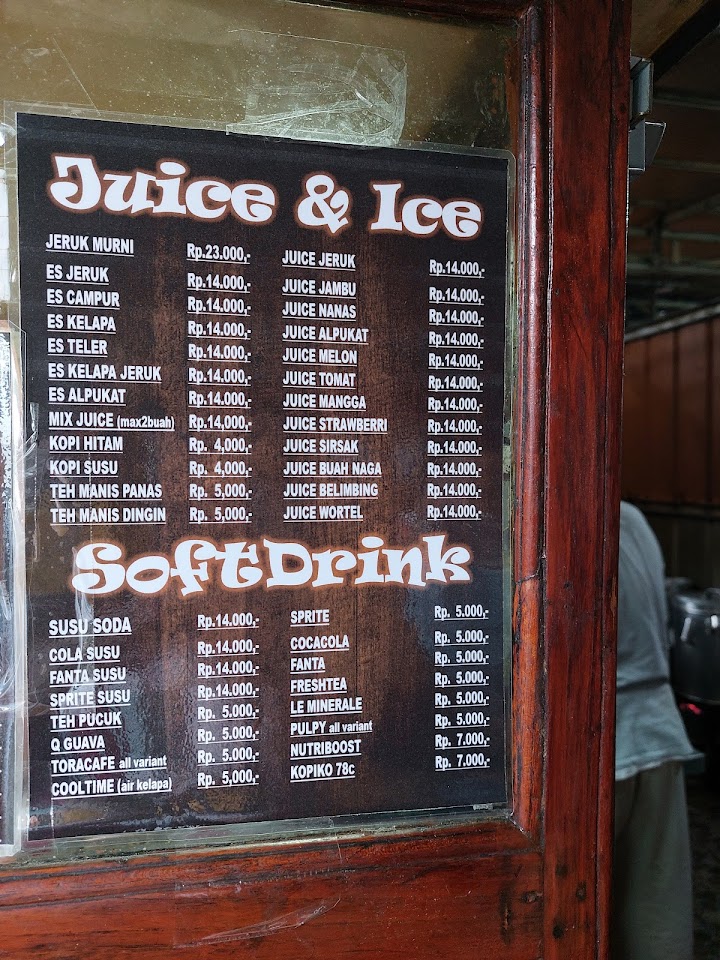 Juice & Ice
JERUK MURNI Rp.23.000,-
ES JERUK Rp.14.000,-
ES CAMPUR Rp.14.000,-
ES KELAPA Rp.14.000,-
ES TELER Rp.14.000,-
ES KELAPA JERUK Rp.14.000,-
ES ALPUKAT Rp.14.000,-
MIX JUICE (max2buah) Rp.14,000,-
KOPI HITAM Rp. 4,000,-
KOPI SUSU Rp. 4,000,-
TEH MANIS PANAS Rp. 5,000,-
TEH MANIS DINGIN Rp. 5,000,-
JUICE JERUK Rp.14.000,-
JUICE JAMBU Rp.14.000,-
JUICE NANAS Rp.14.000,-
JUICE ALPUKAT Rp.14.000,-
JUICE MELON Rp.14.000,-
JUICE TOMAT Rp.14.000,-
JUICE MANGGA Rp.14.000,-
JUICE STRAWBERRI Rp.14.000,-
JUICE SIRSAK Rp.14.000,-
JUICE BUAH NAGA Rp.14.000,-
JUICE BELIMBING Rp.14.000,-
JUICE WORTEL Rp.14.000,-
SoftDrink
SUSU SODA Rp.14.000,-
COLA SUSU Rp.14.000,-
FANTA SUSU Rp.14.000,-
SPRITE SUSU Rp.14.000,-
TEH PUCUK Rp. 5.000,-
Q GUAVA Rp. 5.000,-
TORACAFE all variant Rp. 5.000,-
COOLTIME (air kelapa) Rp. 5,000,-
SPRITE Rp. 5.000,-
COCACOLA Rp. 5.000,-
FANTA Rp. 5.000,-
FRESHTEA Rp. 5.000,-
LE MINERALE Rp. 5.000,-
PULPY all variant Rp. 5.000,-
NUTRIBOOST Rp. 7.000,-
KOPIKO 78c Rp. 7.000,-